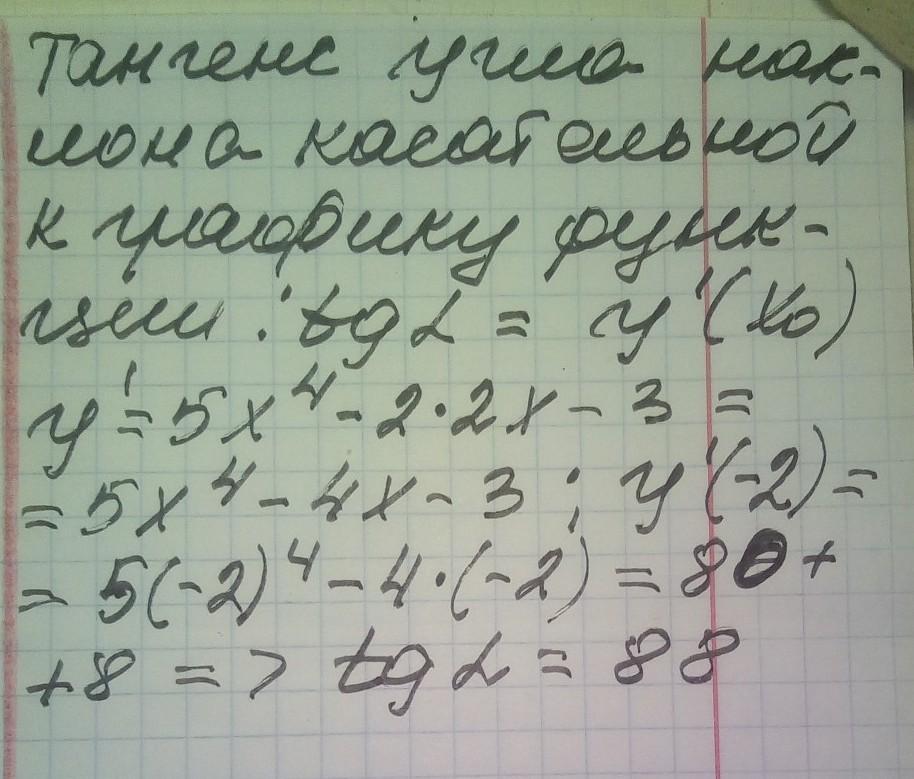 Тангенс угла нак-
лона касательной
к графику функ-
ции : tg α = y'(x₀)
y' = 5x⁴ - 2·2x - 3 =
= 5x⁴ - 4x - 3 ; y'(-2) =
= 5(-2)⁴ - 4·(-2) = 80 +
+ 8 => tg α = 88